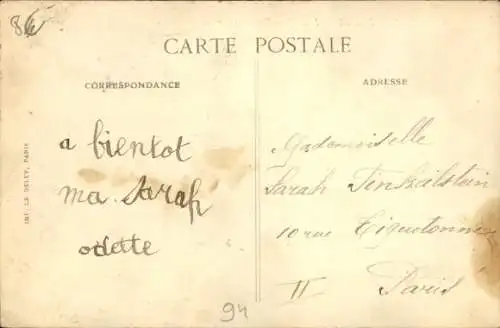 86
CARTE POSTALE
CORRESPONDANCE
a bientot
ma Sarah
odette
ADRESSE
Mademoiselle
Sarah Finkalstein
10 rue Tiquetonne
II Paris
IMP. LE DELEY, PARIS
94